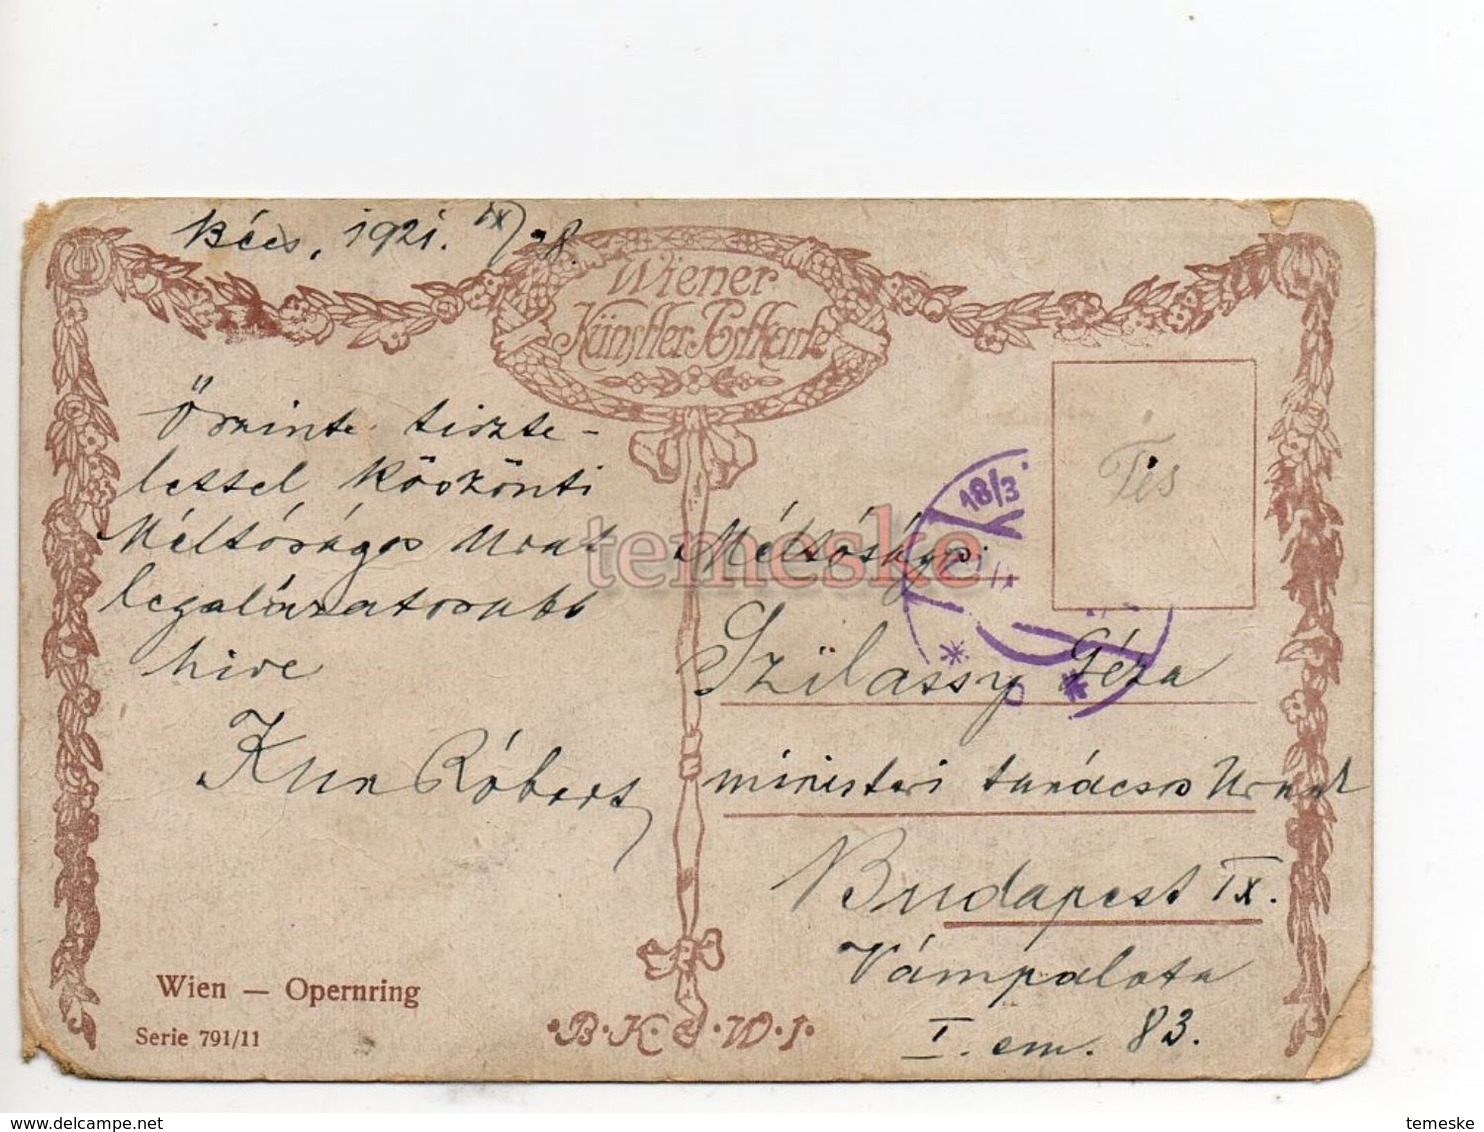 Bécs, 1921. IX/28.
Wiener
Künstler Postkarte
Őszinte tiszte-
lettel köszönti
Méltóságos Urat
legalázatosabb
hive
Kun Róbert
18/3
Tés
Méltóságos
Szilassy Géza
ministeri tanácsos Urnak
Budapest IX.
Vámpalota
I. em. 83.
Wien — Opernring
Serie 791/11
B.K.W.I.
temeske
delcampe.net
temeske